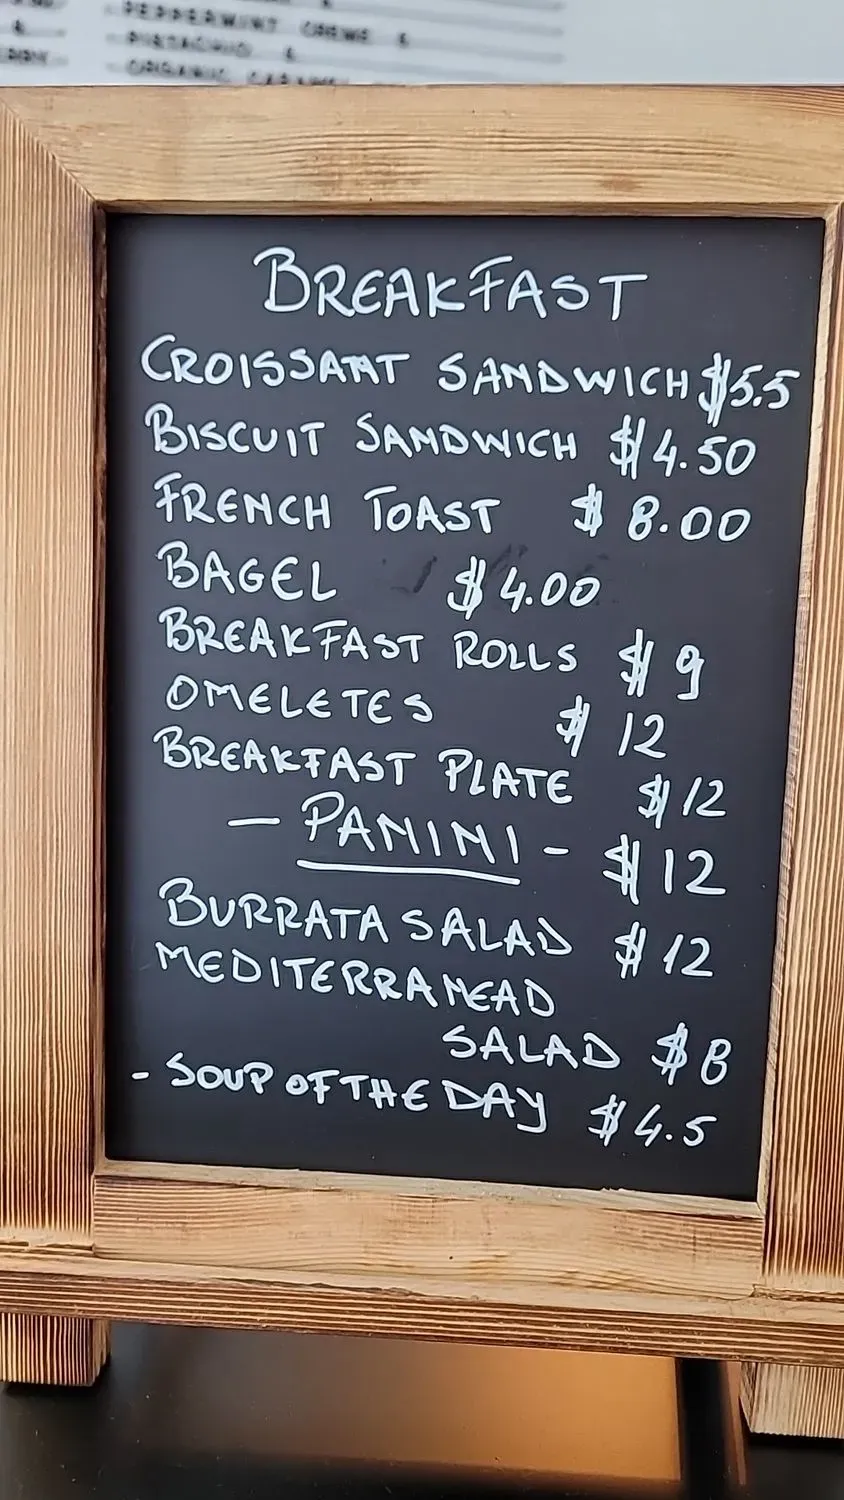 PEPPERMINT CREME &
PISTACHIO &
ORGANIC CARAMEL
BREAKFAST
CROISSANT SANDWICH $5.5
BISCUIT SANDWICH $4.50
FRENCH TOAST $8.00
BAGEL $4.00
BREAKFAST ROLLS $9
OMELETES $12
BREAKFAST PLATE $12
- PANINI - $12
BURRATA SALAD $12
MEDITERRANEAD
SALAD $8
- SOUP OF THE DAY $4.5